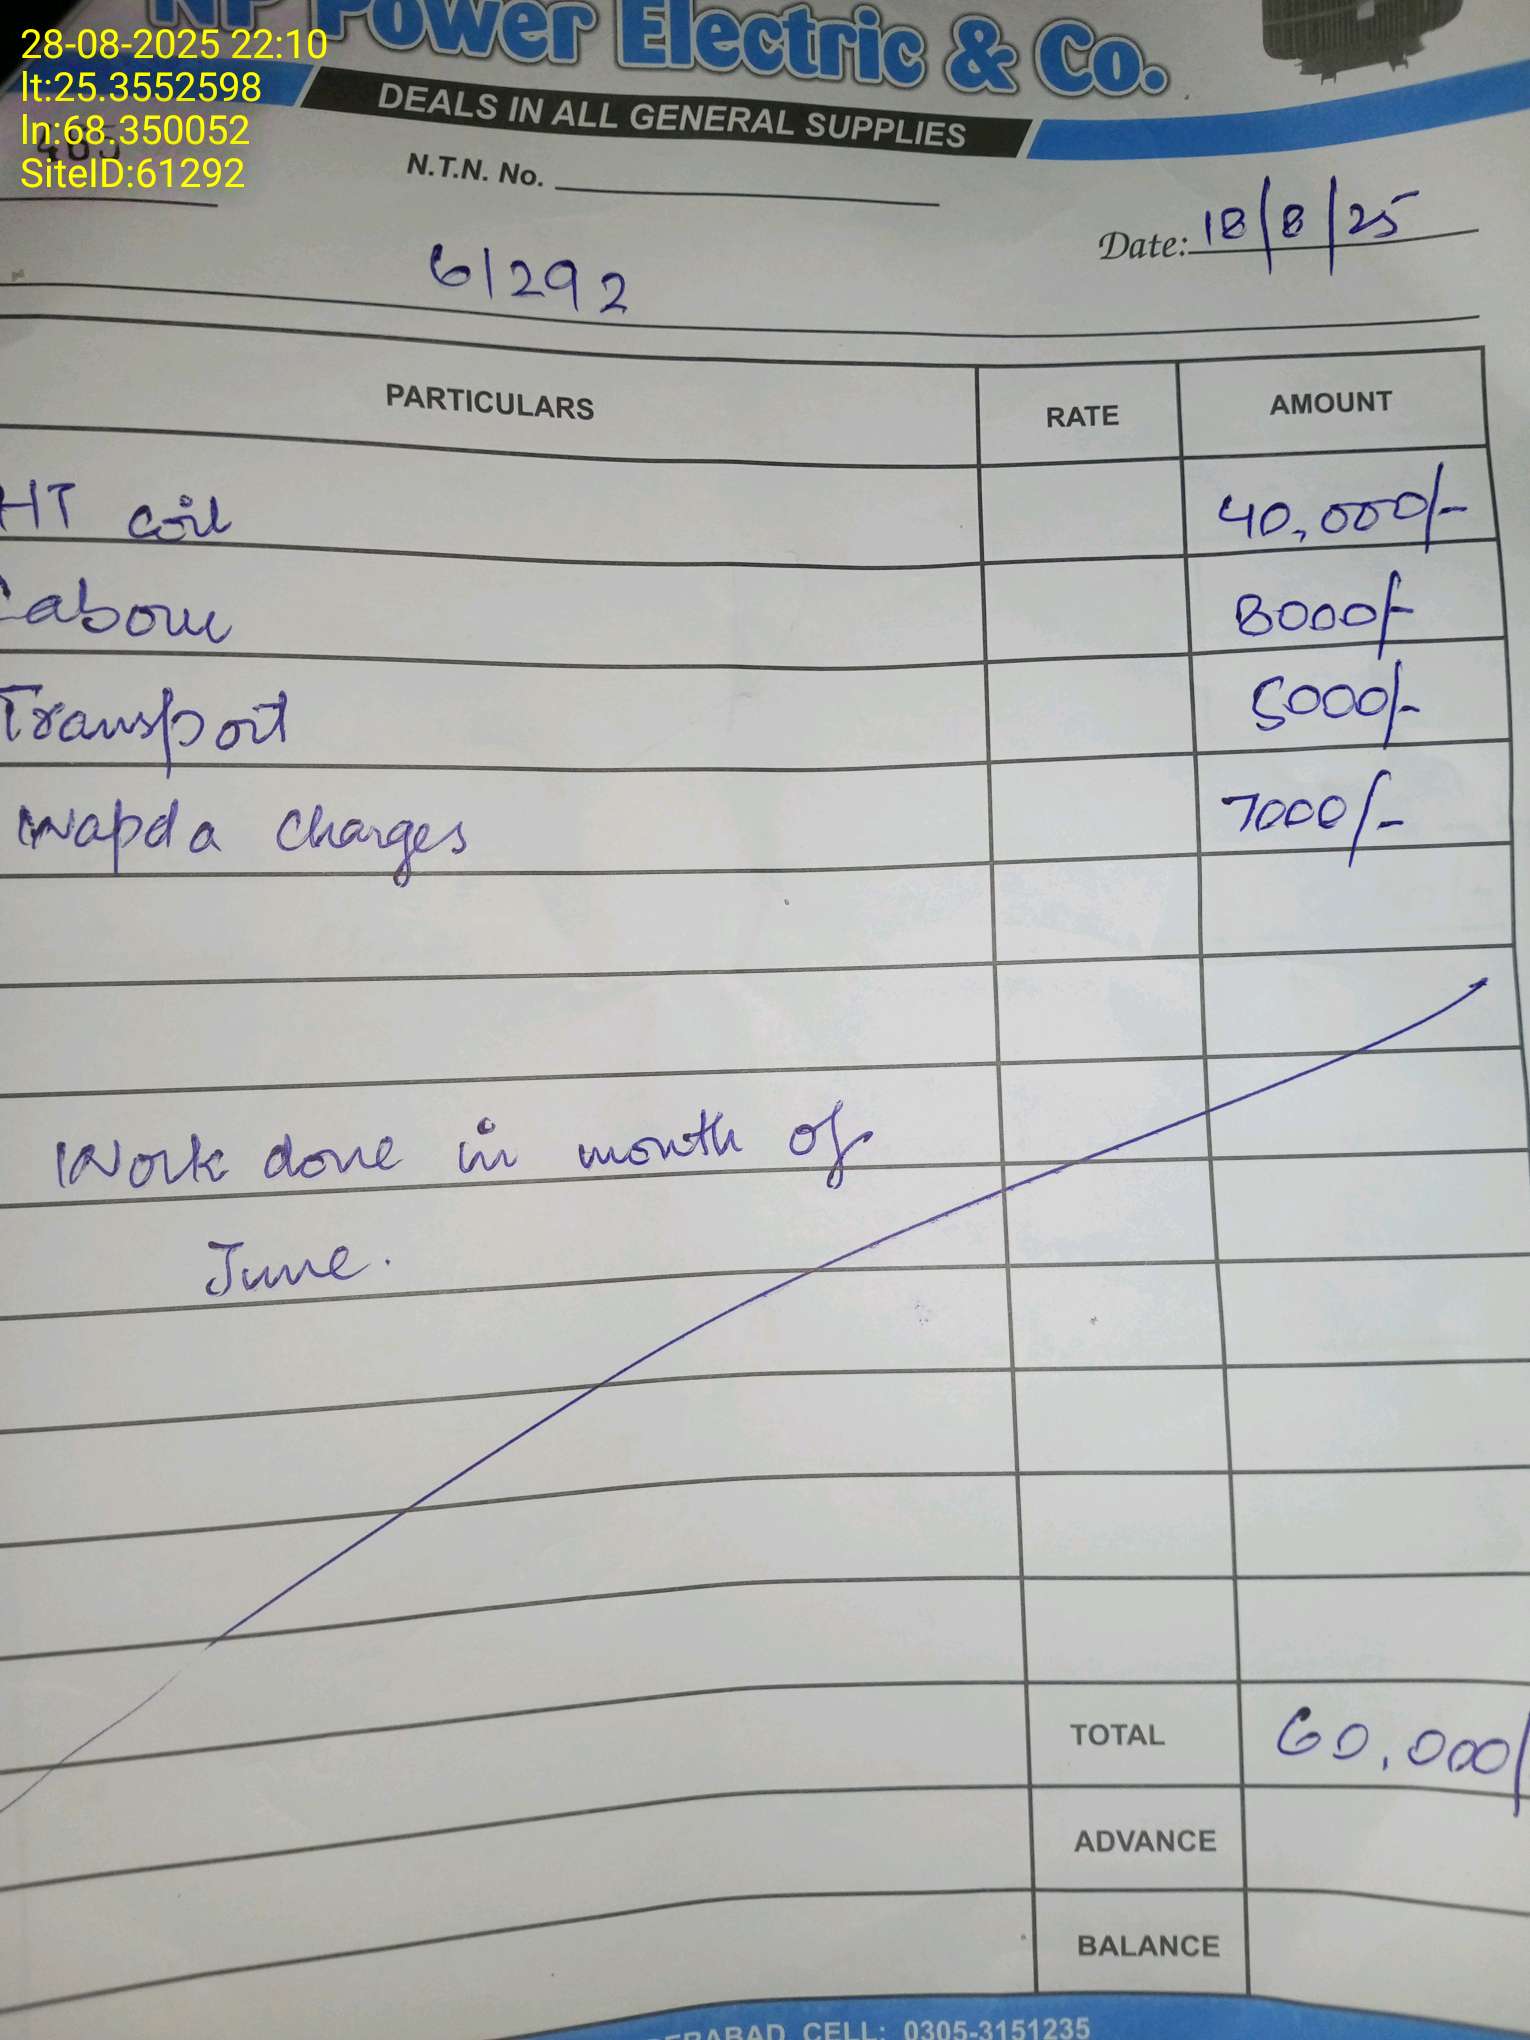 28-08-2025 22:10
lt:25.3552598
ln:68.350052
SiteID:61292
NP Power Electric & Co.
DEALS IN ALL GENERAL SUPPLIES
485
N.T.N. No.
Date: 18/8/25
61292
PARTICULARS RATE AMOUNT
HT coil 40,000/-
Labour 8000/-
Transport 5000/-
Wapda Charges 7000/-
Work done in month of
June.
TOTAL 60,000/
ADVANCE
BALANCE
CELL: 0305-3151235